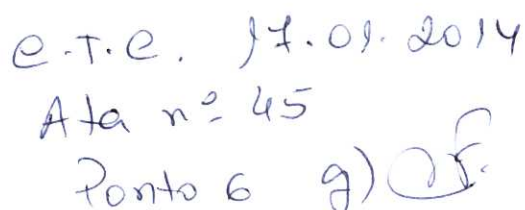 C.T.C. 17.01.2014
Ata nº 45
Ponto 6 g)